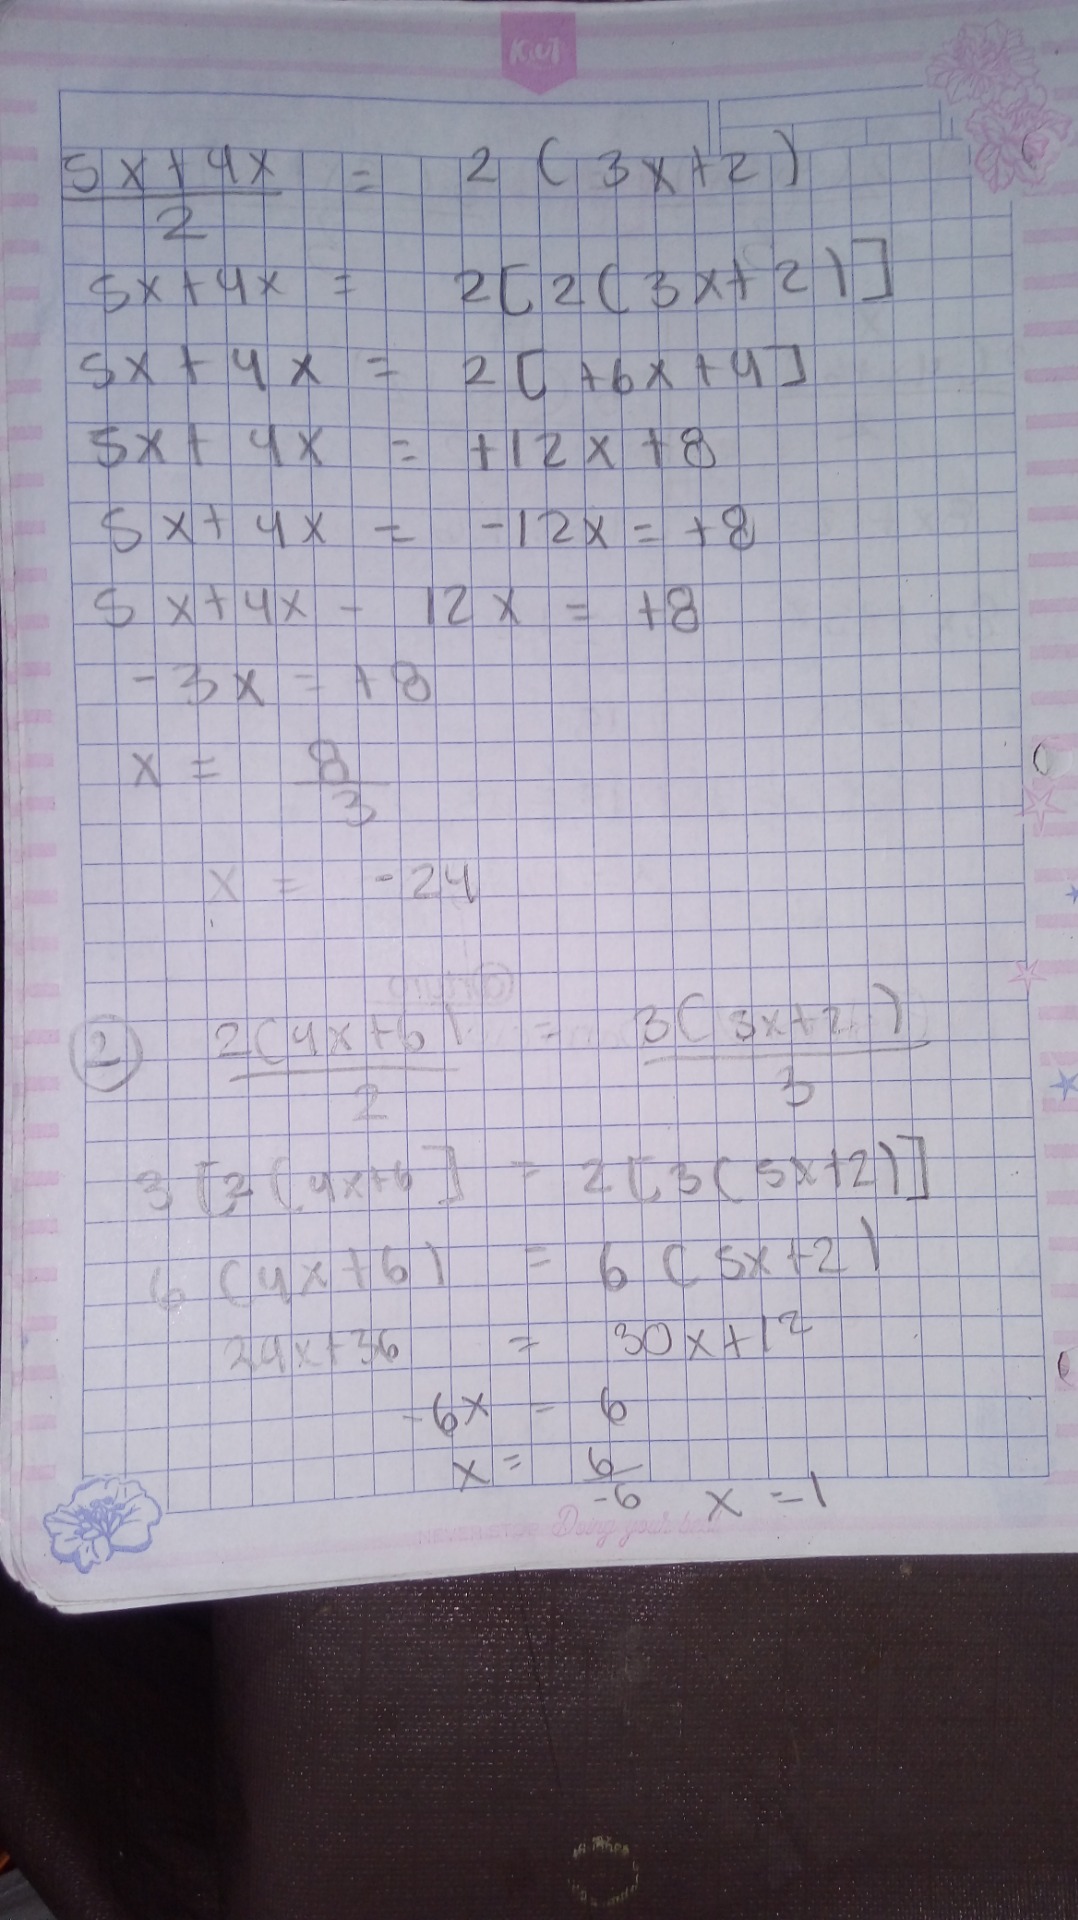 KIUT
5x+4x/2 = 2 ( 3x+2 )
5x+4x = 2[2(3x+2)]
5x+4x = 2[+6x+4]
5x+4x = +12x+8
5x+4x = -12x = +8
5x+4x - 12x = +8
-3x = +8
x = 8/3
x = -24
2 2(4x+6)/2 = 3(3x+2)/3
3[2(4x+6] = 2[3(5x+2)]
6(4x+6) = 6(5x+2)
24x+36 = 30x+12
-6x - 6
x = 6/-6 x = -1
Doing your best